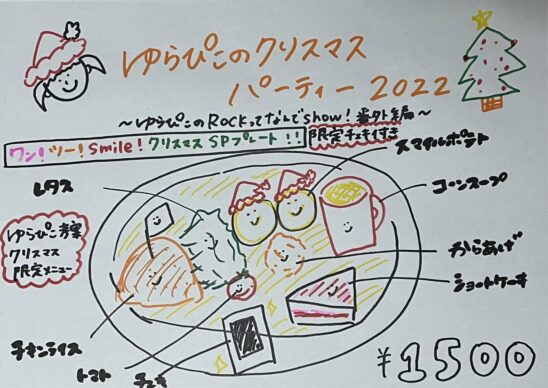 ゆらぴこのクリスマス
パーティー 2022
～ゆらぴこのRockってなんでshow!番外編～
ワン!ツー!Smile!クリスマスSPプレート!!
限定チェキ付き
スマイルポテト
レタス
コーンスープ
ゆらぴこ考案
クリスマス
限定メニュー
からあげ
ショートケーキ
チキンライス
トマト
チェキ
¥1500